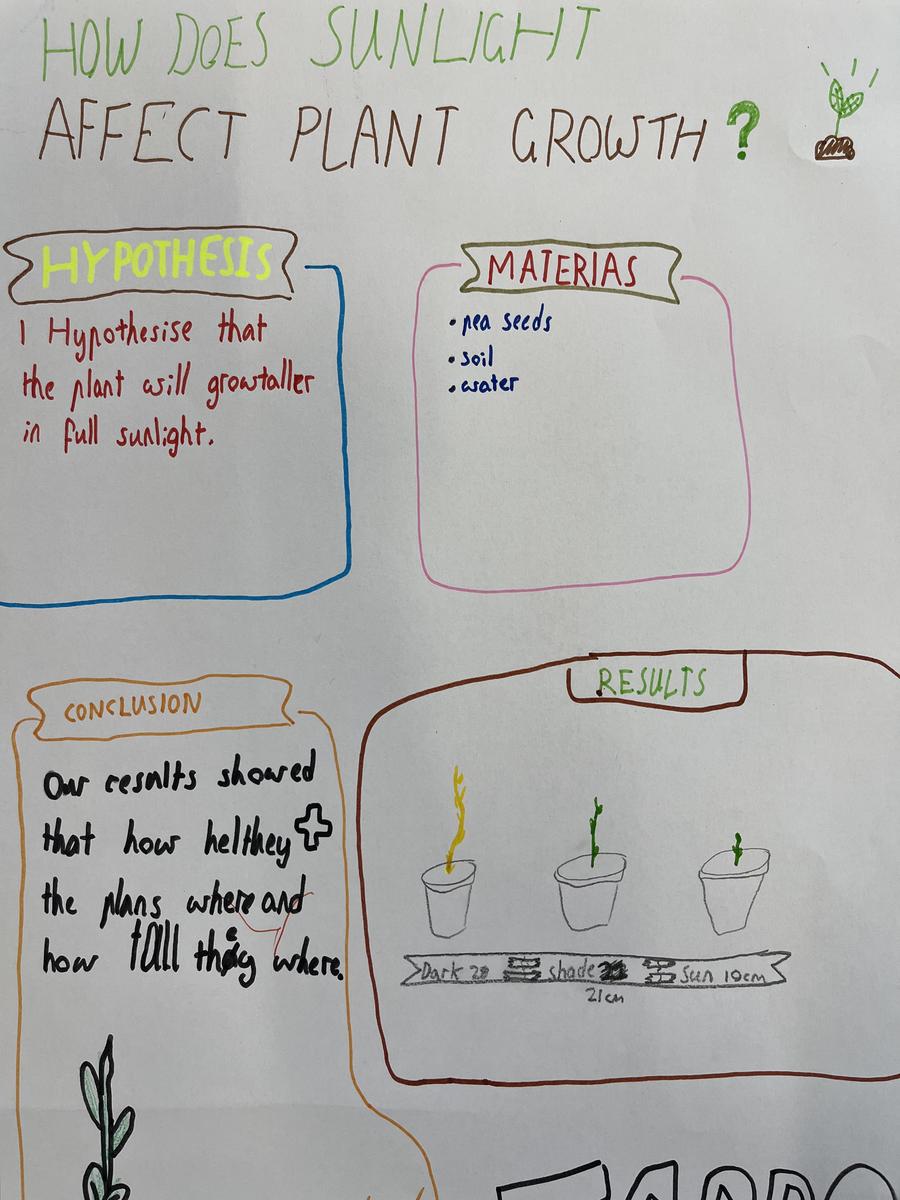 HOW DOES SUNLIGHT
AFFECT PLANT GROWTH?
HYPOTHESIS
I Hypothesise that
the plant will growtaller
in full sunlight.
MATERIAS
• pea seeds
• soil
• water
CONCLUSION
Our results showed
that how helthey +
the plans where and
how tall they where.
RESULTS
Dark 28 shade Sun 10cm
21cm